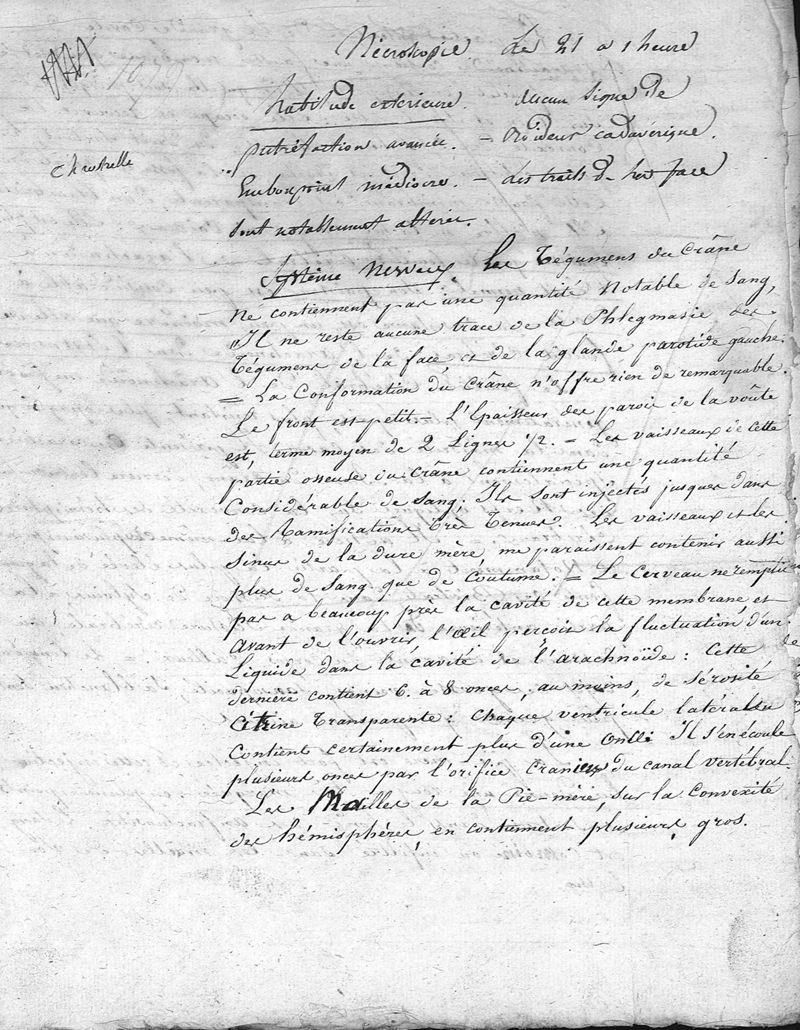 Nécroscopie le 21 a 1 heure
habitude exterieure. Aucun signe de
putréfaction avancée. - Roideur cadavérique.
Embonpoint médiocre. - les traits de la face
sont notablement altérés.
Système Nerveux. Les Tégumens du Crâne
ne contiennent pas une quantité notable de sang,
Il ne reste aucune trace de la Phlegmasie des
Tégumens de la face, et de la glande parotide gauche.
= La Conformation du Crâne n'offre rien de remarquable.
Le front est petit - L'Epaisseur des parois de la voûte
est, terme moyen de 2 Lignes 1/2. = Les vaisseaux de cette
partie osseuse du crâne contiennent une quantité
Considérable de sang; Ils sont injectés jusques dans
des Ramifications très Tenues. Les vaisseaux et les
sinus de la dure mère me paraissent contenir aussi
plus de sang que de Coutume. = Le Cerveau ne remplit
pas a beaucoup près la cavité de cette membrane, et
avant de l'ouvrir, l'œil perçoit la fluctuation d'un
Liquide dans la cavité de l'arachnoïde : Cette
dernière contient 6. à 8 onces, au moins, de sérosité
Citrine Transparente : Chaque ventricule latérale
Contient certainement plus d'une Once Il s'en écoule
plusieurs onces par l'orifice Cranien du canal vertébral.
Les Mailles de la Pie-mère, sur la Convexité
des hémisphères, en contiennent plusieurs gros.